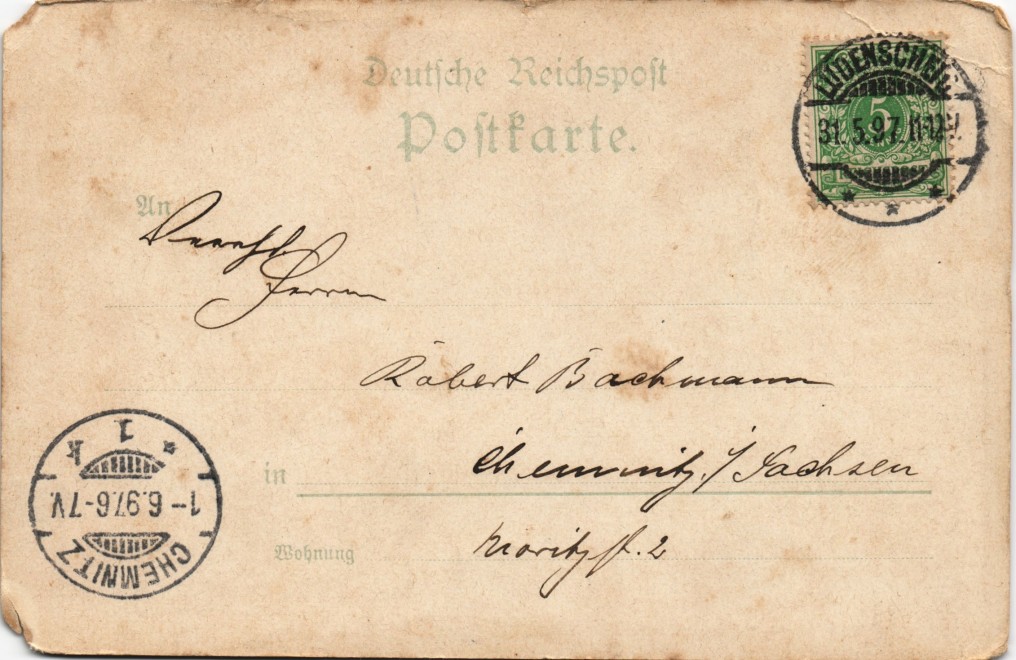 Deutsche Reichspost
Postkarte.
LÜDENSCHEID
5
31.5.97. 11-12V.
An
Herrn
Robert Bachmann
in Chemnitz i/ Sachsen
Wohnung Moritzst. 2
1 k
1-6.97.6-7V.
CHEMNITZ